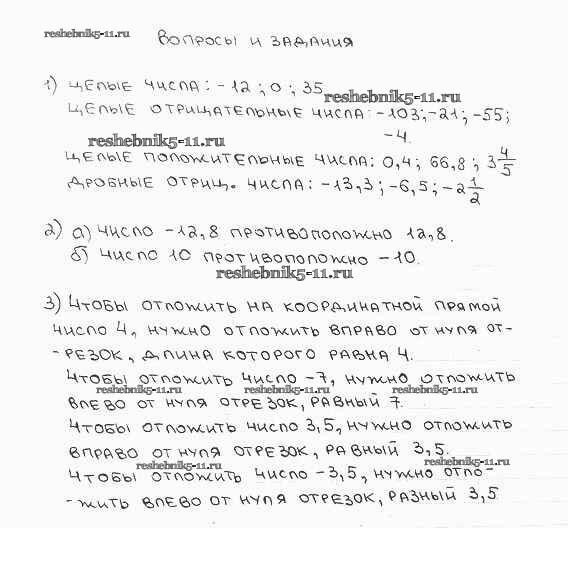 reshebnik5-11.ru
ВОПРОСЫ И ЗАДАНИЯ
1) ЦЕЛЫЕ ЧИСЛА: -12; 0; 35
reshebnik5-11.ru
ЦЕЛЫЕ ОТРИЦАТЕЛЬНЫЕ ЧИСЛА: -103; -21; -55;
-4.
reshebnik5-11.ru
ЦЕЛЫЕ ПОЛОЖИТЕЛЬНЫЕ ЧИСЛА: 0,4; 66,8; 3 4/5
ДРОБНЫЕ ОТРИЦ. ЧИСЛА: -13,3; -6,5; -2 1/2
2) а) ЧИСЛО -12,8 ПРОТИВОПОЛОЖНО 12,8.
б) ЧИСЛО 10 ПРОТИВОПОЛОЖНО -10.
reshebnik5-11.ru
3) ЧТОБЫ ОТЛОЖИТЬ НА КООРДИНАТНОЙ ПРЯМОЙ
ЧИСЛО 4, НУЖНО ОТЛОЖИТЬ ВПРАВО ОТ НУЛЯ ОТ-
-РЕЗОК, ДЛИНА КОТОРОГО РАВНА 4.
ЧТОБЫ ОТЛОЖИТЬ ЧИСЛО -7, НУЖНО ОТЛОЖИТЬ
reshebnik5-11.ru reshebnik5-11.ru reshebnik5-11.ru
ВЛЕВО ОТ НУЛЯ ОТРЕЗОК, РАВНЫЙ 7.
ЧТОБЫ ОТЛОЖИТЬ ЧИСЛО 3,5, НУЖНО ОТЛОЖИТЬ
ВПРАВО ОТ НУЛЯ ОТРЕЗОК, РАВНЫЙ 3,5.
reshebnik5-11.ru reshebnik5-11.ru
ЧТОБЫ ОТЛОЖИТЬ ЧИСЛО -3,5, НУЖНО ОТЛО-
-ЖИТЬ ВЛЕВО ОТ НУЛЯ ОТРЕЗОК, РАЗНЫЙ 3,5